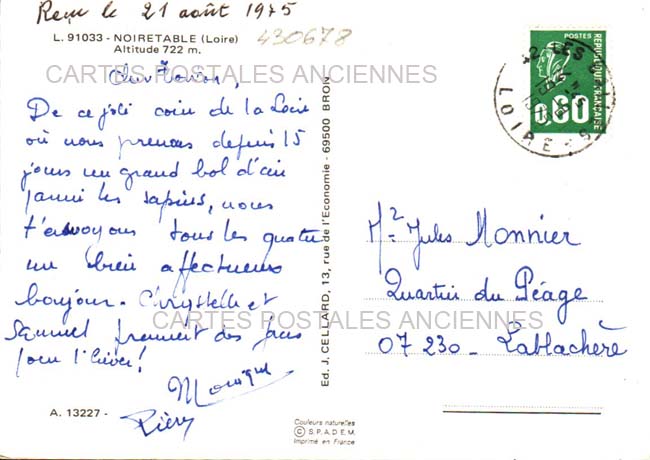 Reçu le 21 août 1975
L. 91033 - NOIRETABLE (Loire)
Altitude 722 m.
430678
CARTES POSTALES ANCIENNES
De ce joli coin de la Loire
où nous prenons depuis 15
jours un grand bol d'air
parmi les sapins, nous
t'envoyons tous les quatre
un bien affectueux
bonjour. Chrystelle et
Samuel prennent des forces
pour l'hiver!
Monique
A. 13227 -
Ed. J. CELLARD, 13, rue de l'Economie - 69500 BRON
Couleurs naturelles
© S.P.A.D.E.M.
Imprimé en France
POSTES
REPUBLIQUE FRANÇAISE
0,60
42 LES
LOIRE
Jules Monnier
Quartier du Péage
CARTES POSTALES ANCIENNES
07230 - Lablachère